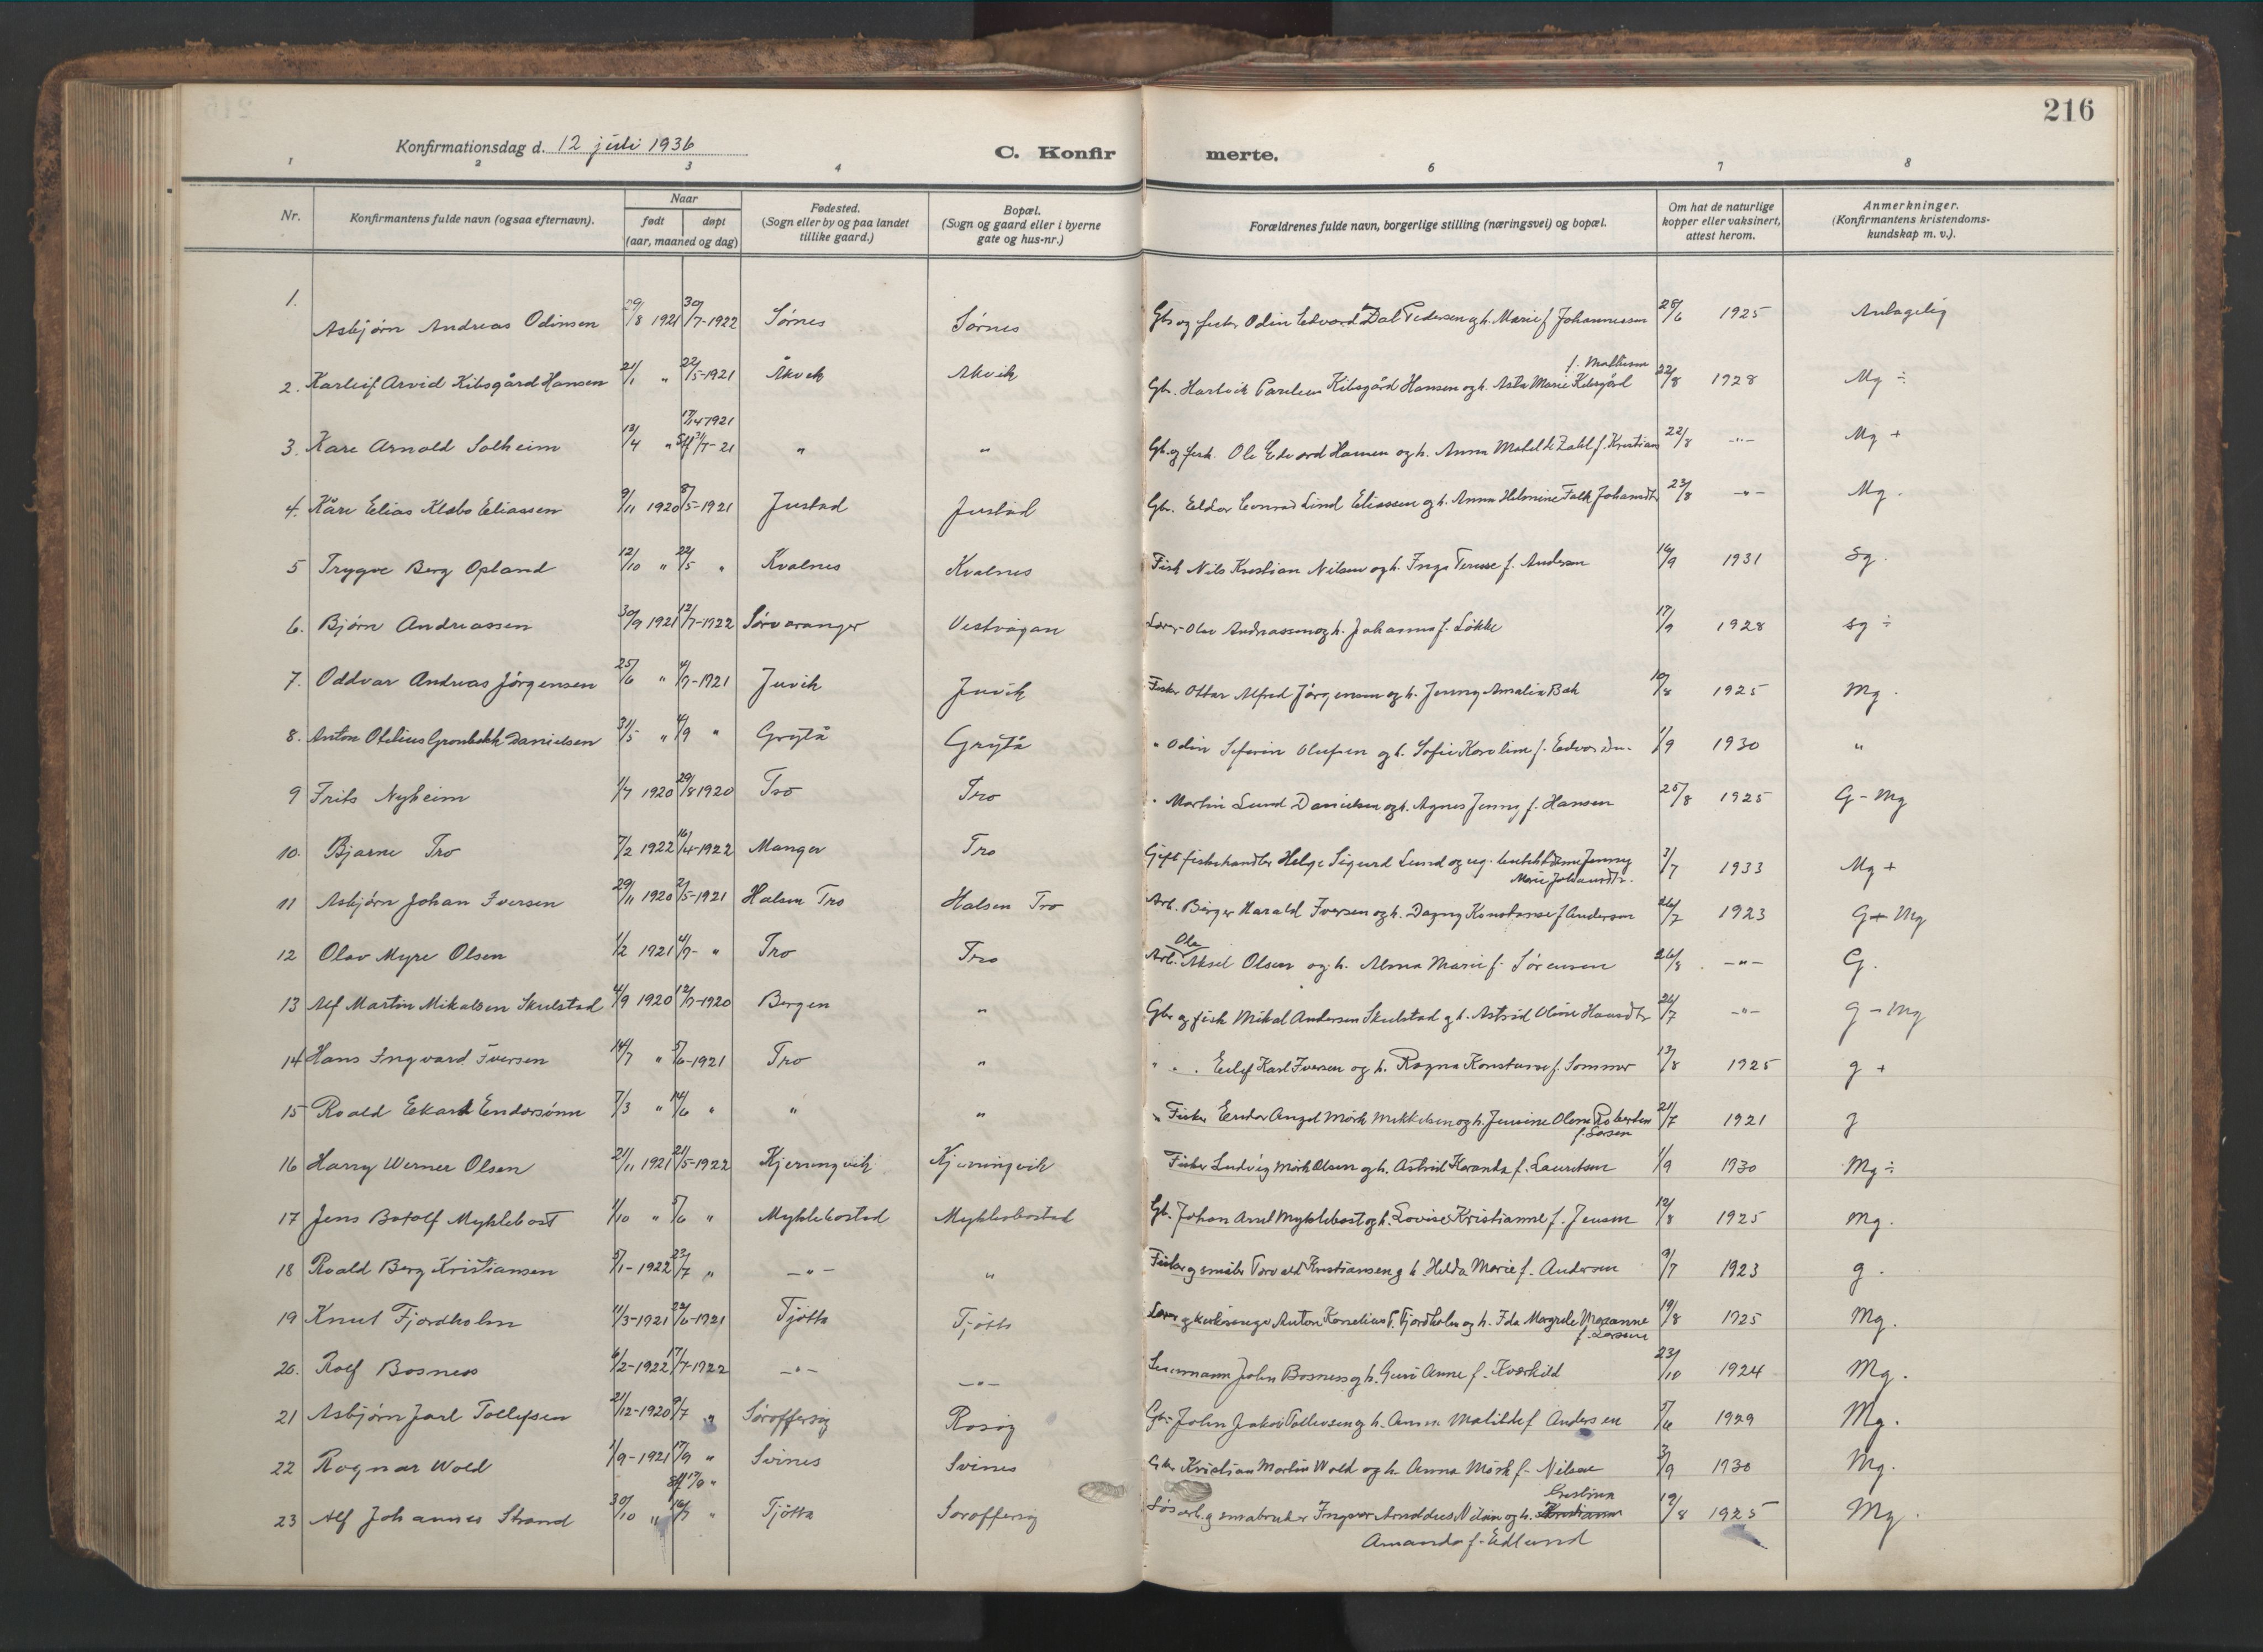 216
Konfirmationsdag d. 12 juli 1936
C. Konfirmerte.
1 2 3 4 6 7 8
Nr. Konfirmantens fulde navn (ogsaa efternavn). Naar født døpt (aar, maaned og dag) Fødested. (Sogn eller by og paa landet tillike gaard.) Bopæl. (Sogn og gaard eller i byerne gate og hus-nr.) Forældrenes fulde navn, borgerlige stilling (næringsvei) og bopæl. Om hat de naturlige kopper eller vaksinert, attest herom. Anmerkninger. (Konfirmantens kristendomskundskap m. v.).
1. Asbjørn Andreas Odinsen 29/8 1921 30/7-1922 Sørnes Sørnes Gbr og fisker Odin Edvard Dal Pedersen og h. Marie f. Johannessen 28/6 1925 Antagelig
2. Karleif Arvid Kibsgård Hansen 21/1 " 22/5-1921 Åkvik Åkvik Gbr. Hartvik Kibsgård Hansen og h. Asta Marie Kibsgård f. Mathisen 22/8 1928 Mg ÷
3. Kåre Arnold Solheim 13/4 " 17/4 1921 21 " " Gbr. og fisk. Ole Edvard Hansen og h. Anna Matilde Zahl f. Kristians 22/8 -"- Mg +
4. Kåre Elias Klæbo Eliassen 9/11 1920 8/5-1921 Justad Justad Gbr. Eldor Conrad Lind Eliassen og h. Anna Helmine Falk Johansdtr 23/8 -"- Mg.
5 Trygve Berg Opland 12/10 " 22/5 " Kvalnes Kvalnes Fisk Nils Kristian Nilsen og h. Inga Terese f. Andersen 16/9 1931 Sg.
6. Bjørn Andreassen 30/9 1921 12/7-1922 Sørvaranger Vestvågan Lærer Olav Andreassen og h. Johanna f. Løkke 17/9 1928 Sg ÷
7. Oddvar Andreas Jørgensen 25/6 " 4/9-1921 Juvik Juvik Fisker Ottar Alfred Jørgensen og h. Jenny Amalia Bah 10/8 1925 Mg.
8. Anton Otelius Grønbekk Danielsen 31/5 " 4/9 " Grytå Grytå " Odin Seferin Olufsen og h. Sofie Karoline f. Edvardsen. 1/9 1930 "
9 Frits Nyheim 1/7 1920 29/8 1920 Tro Tro " Martin Lund Danielsen og h. Agnes Jenny f. Hansen 25/8 1925 G - Mg
10. Bjarne Tro 7/2 1922 16/4-1922 Manger Tro Gift fiskehandler Helge Sigurd Lund og ug. Jenny Marie Johansdtr. 3/7 1933 Mg +
11 Asbjørn Johan Iversen 29/11 1920 2/5-1921 Halsen Tro Halsen Tro Arb. Birger Harald Iversen og h. Dagny Konstanse f Andersen 26/7 1923 G + Mg
12 Olav Myre Olsen 1/2 1921 4/9- " Tro Tro Arb. Ole Aksel Olsen og h. Alma Marie f. Sørensen 26/8 -"- G.
13 Alf Martin Mikalsen Skulstad 4/9 1920 12/9-1920 Bergen " Gbr og fisk Mikal Andersen Skulstad og h. Astrid Oline Hansdtr 26/7 -"- g - Mg
14 Hans Ingvard Iversen 14/7 " 5/6-1921 Tro " " " Eilif Karl Iversen og h. Ragna Konstanse f. Sommer 13/8 1925 g +
15 Roald Eikard Endersønn 7/3 " 14/6 " " " " Fisker Endor Angel Mørk Mikkelsen og h. Jensine Olene Robertine f. Larsen 21/7 1921 g
16 Harry Werner Olsen 21/11 1921 21/5-1922 Kjerringvik Kjerringvik Fisker Ludvig Mørk Olsen og h. Astrid Haranda f. Lauritsen 1/9 1930 Mg ÷
17 Jens Botolf Myklebost 1/10 " 5/6 " Myklebostad Myklebostad Gb. Johan Arnt Myklebost og h. Lovise Kristianne f. Jensen 12/8 1925 Mg.
18 Roald Berg Kristiansen 5/1-1922 23/7 " -"- " Fisker og småbr Torvald Kristiansen og h. Helda Marie f. Andersen 9/7 1923 g.
19 Knut Fjordholm 11/3-1921 22/6-1921 Tjøtta Tjøtta Lærer og kirkesanger Anton Kornelius P. Fjordholm og h. Ida Margrete Marianne f. Larsen 19/8 1925 Mg.
20. Rolf Bosness 6/2-1922 17/7-1922 -"- -"- Lensmann John Bosness og h. Guri Anne f. Kverkild 23/10 1924 Mg.
21 Asbjørn Jarl Tollefsen 21/12-1920 9/7 " Søroffersøy Rosøy Gbr John Jakob Tollevsen og h. Anna Matilde f Andersen 5/6 1929 Mg.
22 Ragnar Wold 1/9-1921 17/9 " Svines Svines Gbr Kristian Martin Wold og h. Anna Mørk f. Nilsen 3/9 1930 Mg.
23 Alf Johannes Strand 30/10 " 16/7 " Tjøtta Søroffersøy Løsarb. og småbruker Ingvar Arnoldus Nilsen og h. Kristianna Cristina Amanda f. Edlund 19/8 1925 Mg.